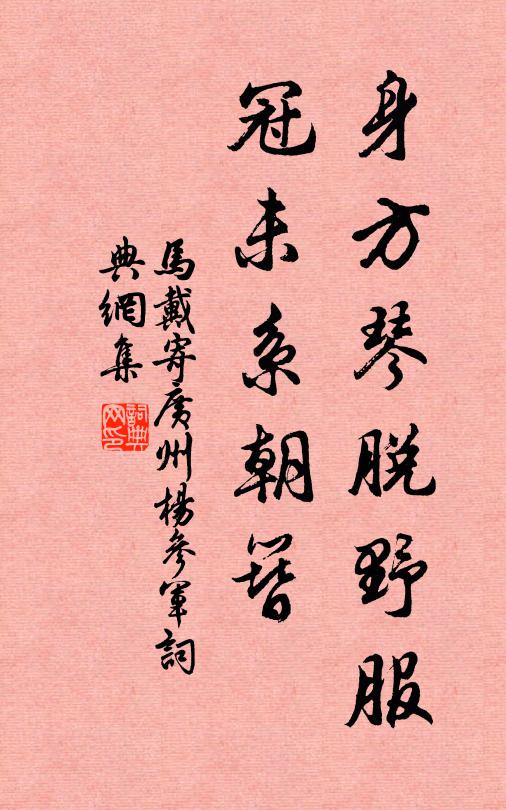 身方琴脱野服
冠未系朝簪
馬戴寄廣州楊參軍詞
典網集
詞典
网印